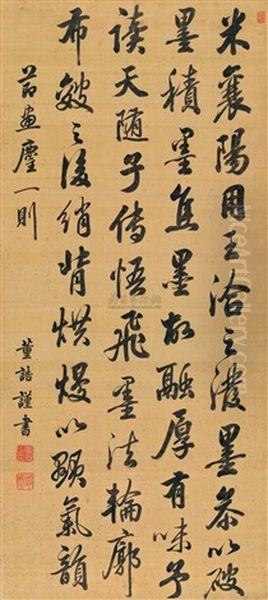 米襄陽用王洽之潑墨參以破
墨積墨焦墨故融厚有味予
讀天隨子傳悟飛墨法輪廓
布皴之後綃背烘熳以顯氣韻
節畫麈一則
董誥謹書